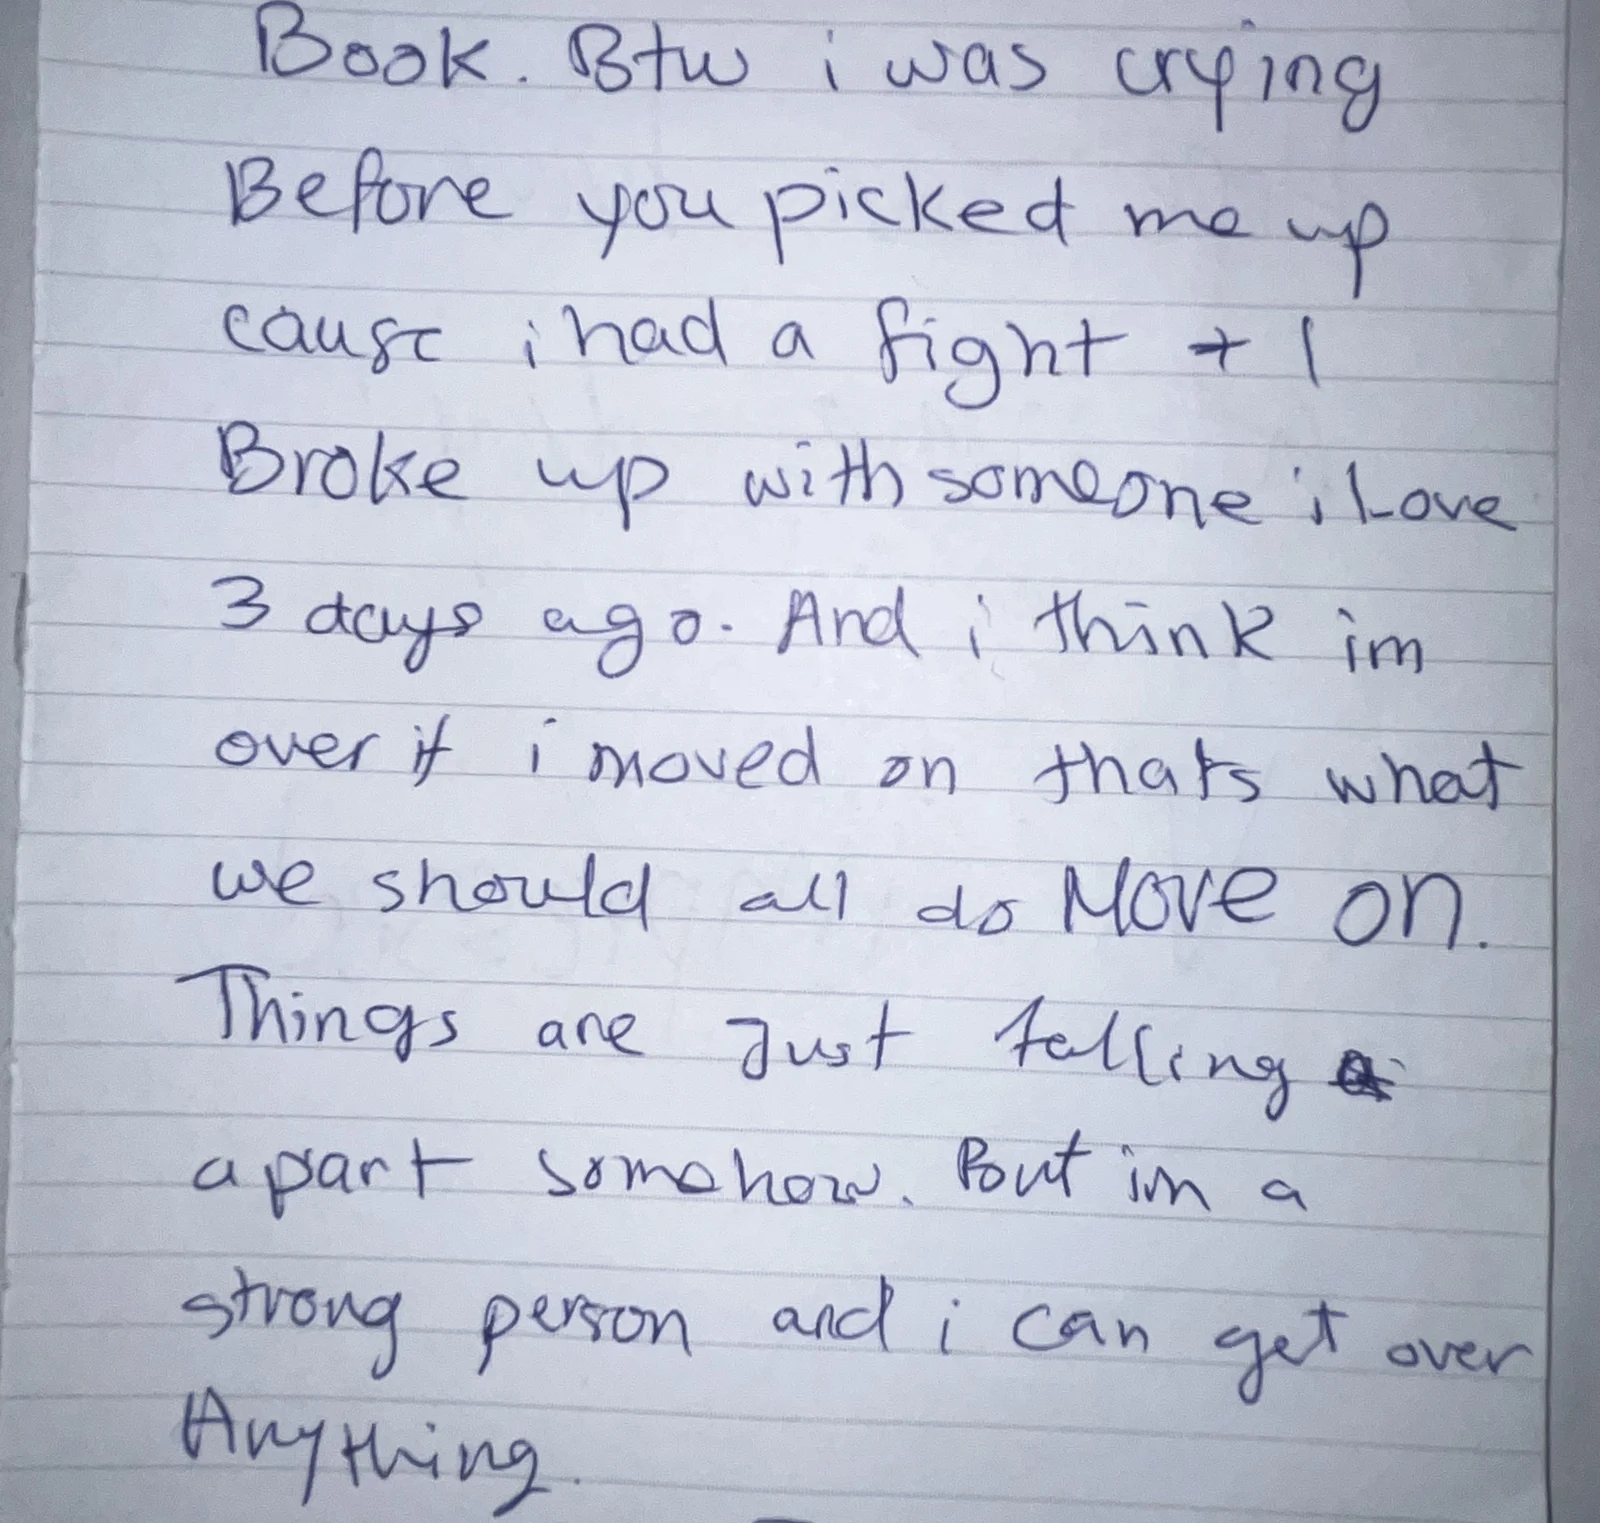 Book. Btw i was crying
Before you picked me up
cause i had a fight + I
Broke up with someone i Love
3 days ago. And i think im
over it i moved on thats what
we should all do Move on.
Things are Just falling
apart somehow. But im a
strong person and i can get over
Anything.